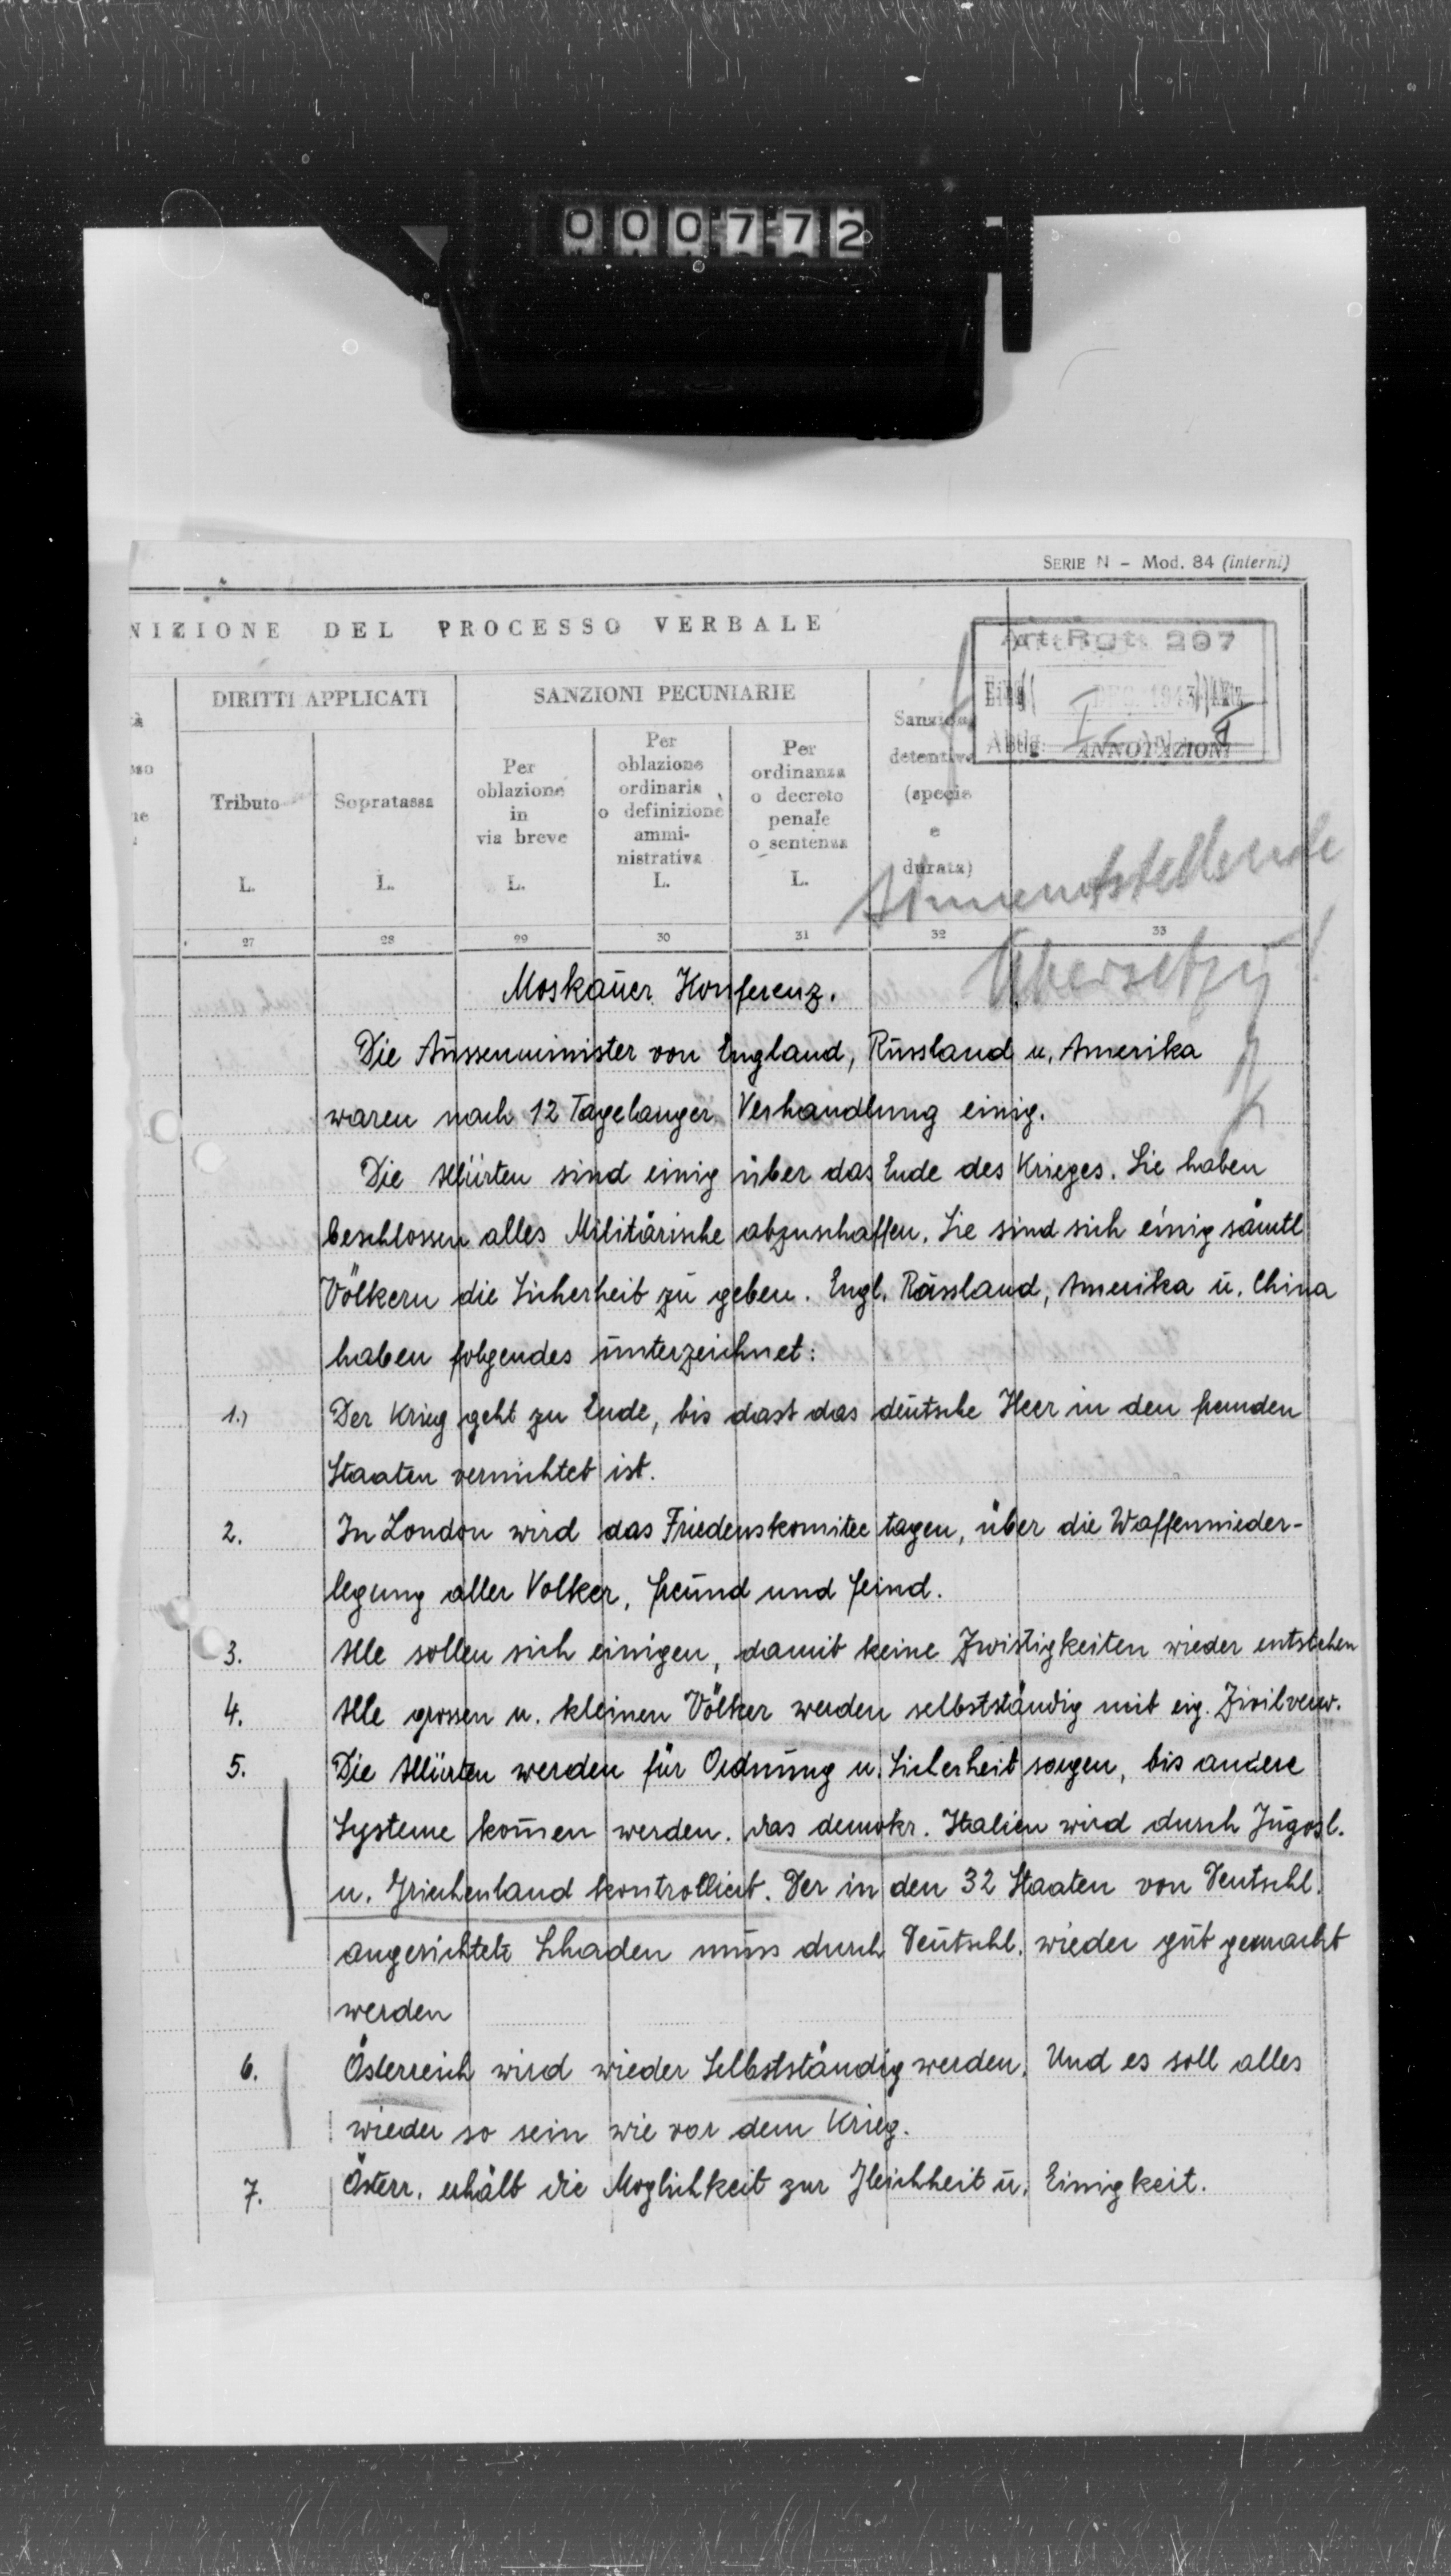 000772
SERIE N - Mod. 84 (interni)
NIZIONE DEL PROCESSO VERBALE
Art. Rgt. 297
Eing. DEZ. 1943
Abtlg. Ic
DIRITTI APPLICATI
SANZIONI PECUNIARIE
Tributo
L.
Sopratassa
L.
Per
oblazione
in
via breve
L.
Per
oblazione
ordinaria
o definizione
ammi-
nistrativa
L.
Per
ordinanza
o decreto
penale
o sentenza
L.
Sanzioni
detentive
(specie
e
durata)
ANNOTAZIONI
27 28 29 30 31 32 33
Sinnentstellende
Übersetzg!
Moskauer Konferenz.
Die Aussenminister von England, Russland u. Amerika
waren nach 12 Tagelanger Verhandlung einig.
Die Alliirten sind einig über das Ende des Krieges. Sie haben
beschlossen alles Militärische abzuschaffen. Sie sind sich einig sämtl
Völkern die Sicherheit zu geben. Engl. Russland, Amerika u. China
haben folgendes unterzeichnet:
1.) Der Krieg geht zu Ende, bis dast das deutsche Heer in den fremden
Staaten vernichtet ist.
2. In London wird das Friedenskomitee tagen, über die Waffennieder-
legung aller Volker, freund und feind.
3. Alle sollen sich einigen, damit keine Zwistigkeiten wieder entstehen
4. Alle grossen u. kleinen Völker werden selbstständig mit eig. Zivilverw.
5. Die Alliirten werden für Ordnung u. Sicherheit sorgen, bis andere
Systeme kom̄en werden. Das demokr. Italien wird durch Jugosl.
u. Griechenland kontrolliert. Der in den 32 Staaten von Deutschl.
angerichtete Schaden muss durch Deutschl. wieder gut gemacht
werden
6. Österreich wird wieder Selbstständig werden. Und es soll alles
wieder so sein wie vor dem Krieg.
7. Österr. erhält die Moglichkeit zur Gleichheit u. Einigkeit.